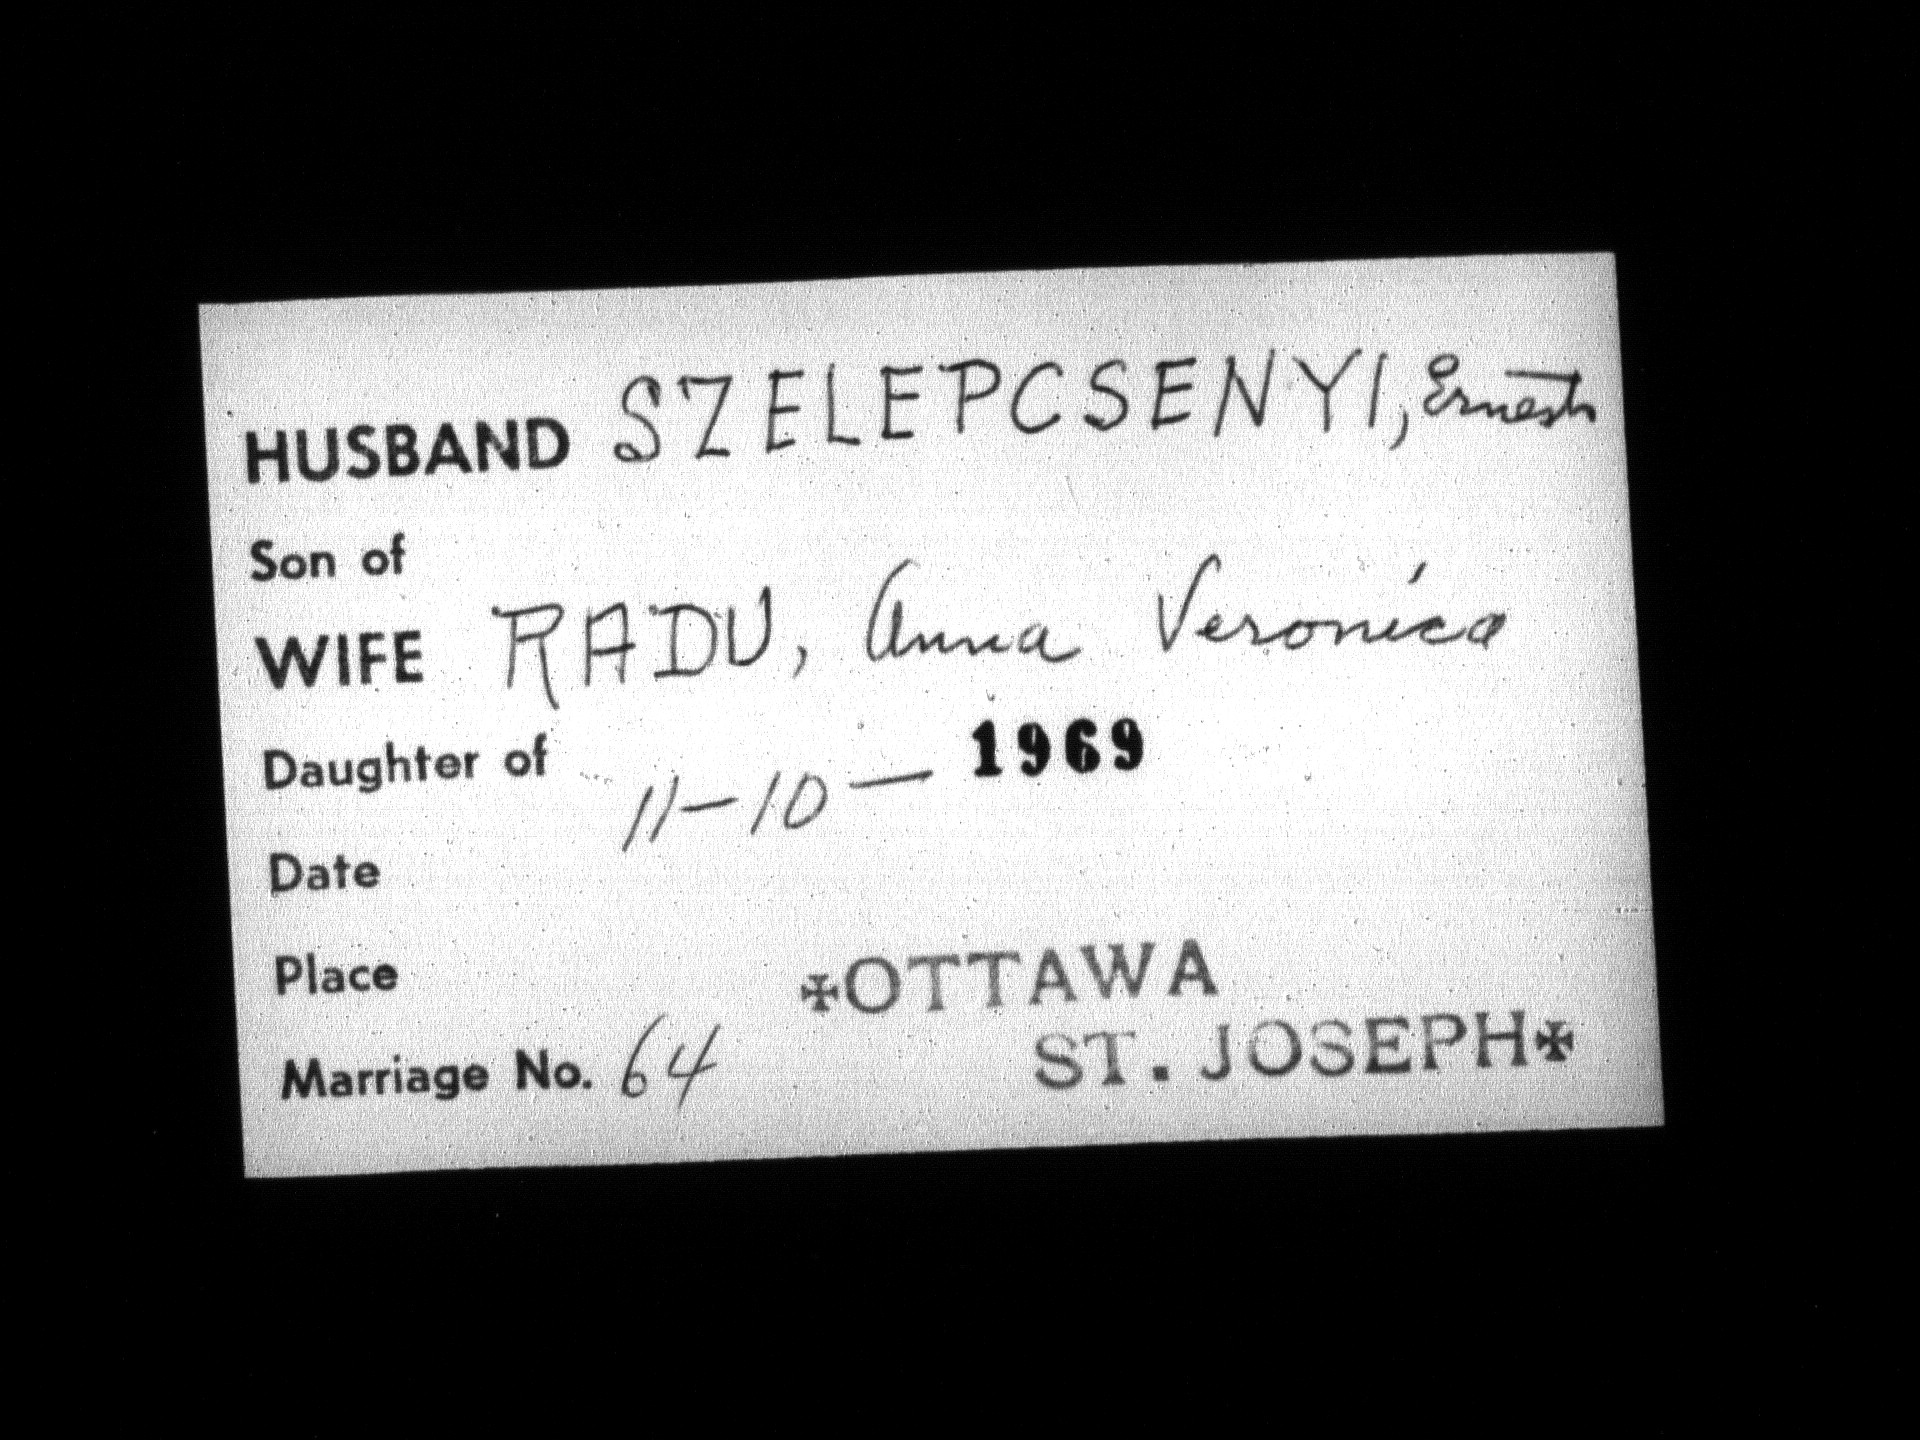 HUSBAND SZELEPCSENYI, Ernest
Son of
WIFE RADU, Anna Veronica
Daughter of
11-10- 1969
Date
Place
✠OTTAWA
Marriage No. 64
ST. JOSEPH✠